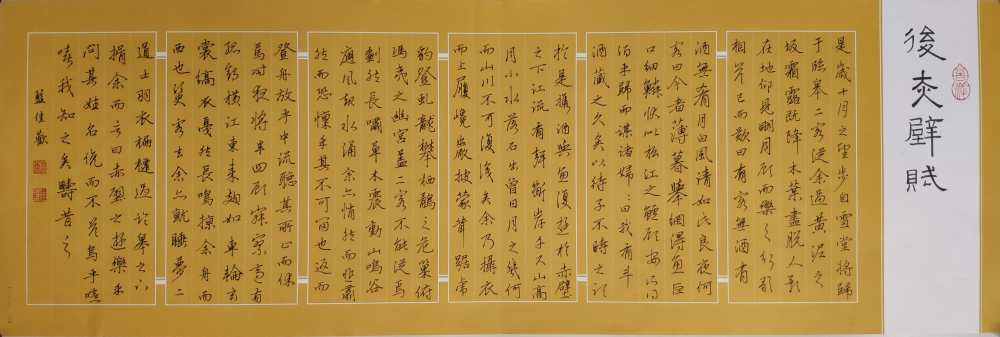 後赤壁賦
是歲十月之望步自雪堂將歸
于臨皋二客從余過黃泥之
坂霜露既降木葉盡脫人影
在地仰見明月顧而樂之行歌
相答已而歎曰有客無酒有
酒無肴月白風清如此良夜何
客曰今者薄暮舉網得魚巨
口細鱗狀似松江之鱸顧安所得
酒乎歸而謀諸婦〻曰我有斗
酒藏之久矣以待子不時之須
於是攜酒與魚復遊於赤壁
之下江流有聲斷岸千尺山高
月小水落石出曾日月之幾何
而山川不可復識矣余乃攝衣
而上履巉巖披蒙茸踞虎
豹登虬龍攀栖鶻之危巢俯
馮夷之幽宮蓋二客不能從焉
劃然長嘯草木震動山鳴谷
應風起水涌余亦悄然而悲肅
然而恐懍乎其不可留也返而
登舟放乎中流聽其所止而休
焉時夜將半四顧寂寥適有
孤鶴橫江東來翅如車輪玄
裳縞衣戛然長鳴掠余舟而
西也須臾客去余亦就睡夢二
道士羽衣蹁躚過臨皋之下
揖余而言曰赤壁之遊樂乎
問其姓名俛而不答烏乎噫
嘻我知之矣疇昔之
藍佳歡